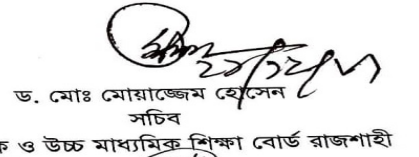 ড. মোঃ মোয়াজ্জেম হোসেন
সচিব
ও উচ্চ মাধ্যমিক শিক্ষা বোর্ড রাজশাহী